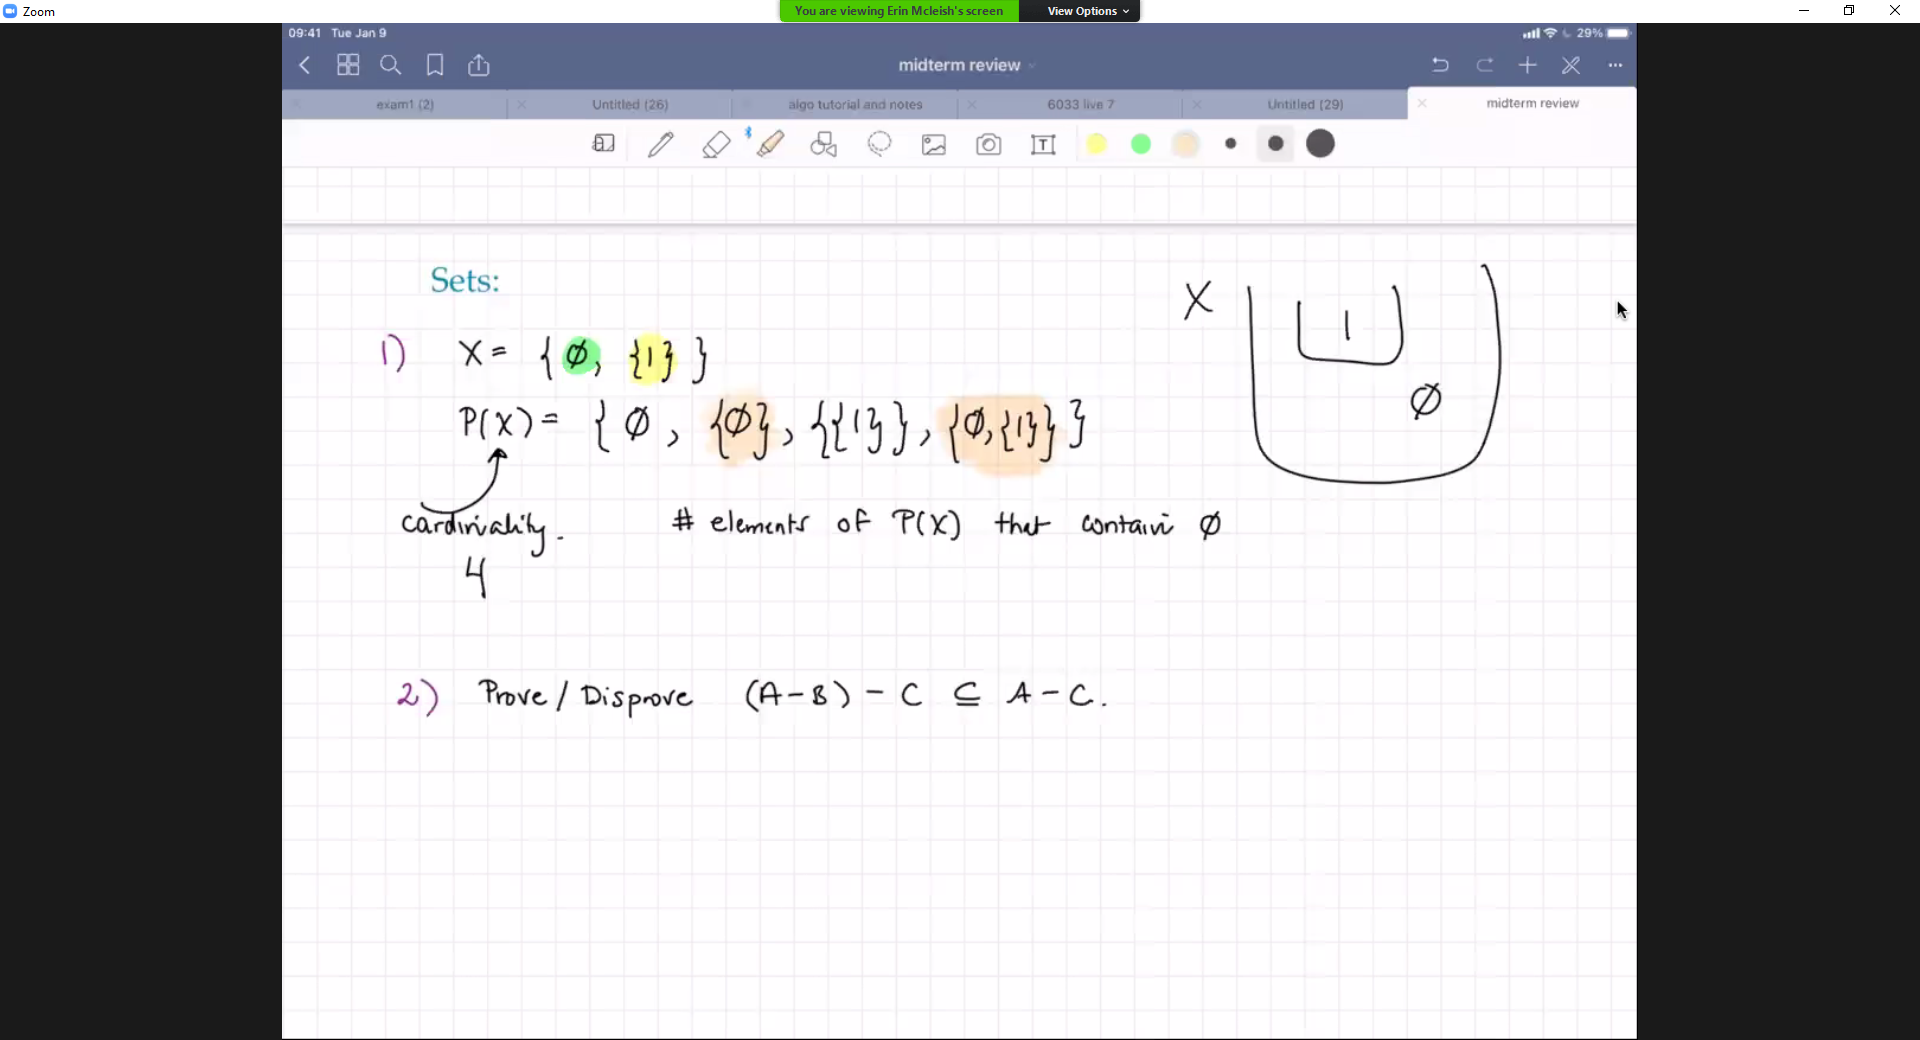 Zoom
You are viewing Erin Mcleish's screen
View Options
09:41 Tue Jan 9
29%
midterm review
exam1 (2)
Untitled (26)
algo tutorial and notes
6033 live 7
Untitled (29)
midterm review
T
Sets:
X
1
∅
1) X = { ∅, {1} }
P(X) = { ∅ , {∅}, {{1}}, {∅,{1}} }
cardinality.
# elements of P(X) that contain ∅
4
2) Prove / Disprove (A-B) - C ⊆ A - C.